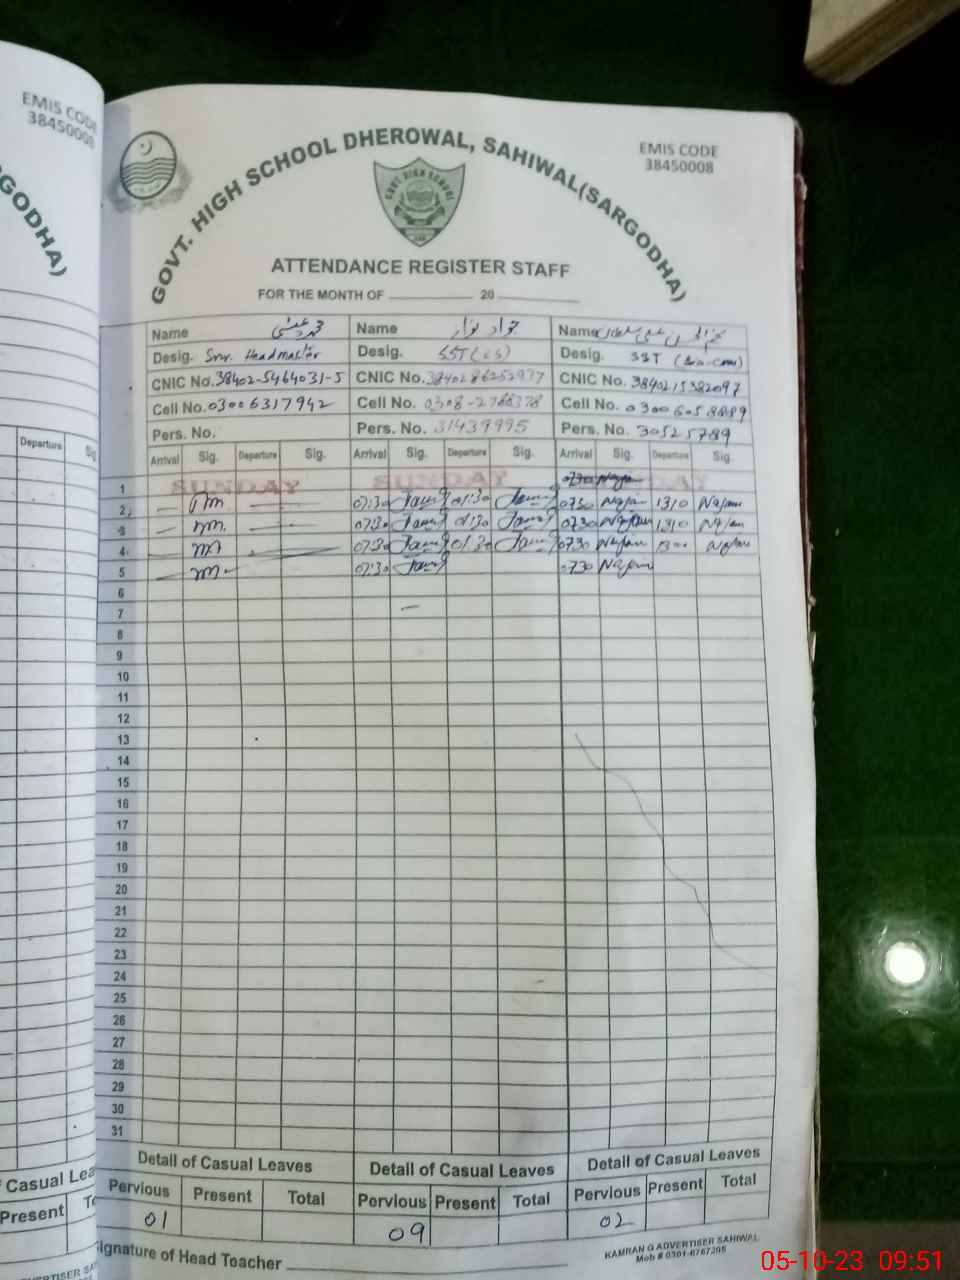 EMIS CODE
38450008
GODHA)
Departure
Casual Lea
Present
EMIS CODE
38450008
GOVT. HIGH SCHOOL DHEROWAL, SAHIWAL(SARGODHA)
GOVT. HIGH SCHOOL
ATTENDANCE REGISTER STAFF
FOR THE MONTH OF ____________ 20 ____________
Name محمد Name جواد نواز Name
Desig. Snr. Headmaster Desig. SST(CS) Desig. SST
CNIC No. 38402-5464031-5 CNIC No. CNIC No. 3840215382097
Cell No. 03006317942 Cell No. 0308-2788378 Cell No. 03006058889
Pers. No. Pers. No. 31439995 Pers. No. 30525789
Arrival Sig. Departure Sig. Arrival Sig. Departure Sig. Arrival Sig. Departure Sig.
1 SUNDAY SUNDAY 0730 Najam
2 07:30 01:30 0730 Najam 1310 Najam
3 07:30 01:30 0730 Najam 1310 Najam
4 07:30 01:30 0730 Najam 1300 Najam
5 07:30 0730 Najam
6
7
8
9
10
11
12
13
14
15
16
17
18
19
20
21
22
23
24
25
26
27
28
29
30
31
Detail of Casual Leaves Detail of Casual Leaves Detail of Casual Leaves
Pervious Present Total Pervious Present Total Pervious Present Total
01 09 02
Signature of Head Teacher ____________
KAMRAN G ADVERTISER SAHIWAL
Mob # 0301-6767205
05-10-23 09:51